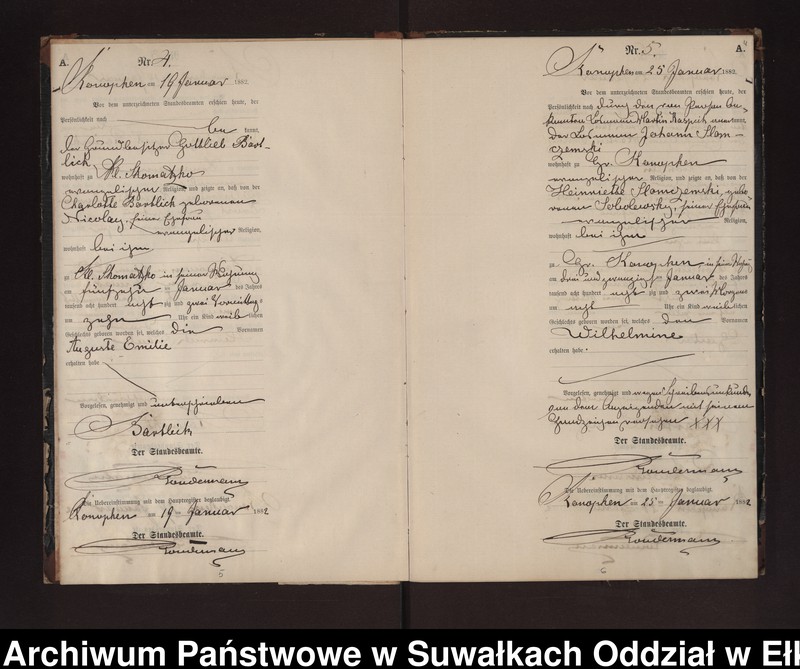 A.
Nr. 4.
Konopken am 19 Januar 1882.
Vor dem unterzeichneten Standesbeamten erschien heute, der
Persönlichkeit nach
be kannt,
der Grundbesitzer Gottlieb Bart-
lich,
wohnhaft zu Kl. Skomatzko
evangelischer Religion, und zeigte an, daß von der
Charlotte Bartlick geborenen
Nicolay, seiner Ehefrau
evangelischer Religion,
wohnhaft bei ihm
zu Kl. Skomatzko in seiner Wohnung
am fünfzehn ten Januar des Jahres
tausend acht hundert acht zig und zwei Vormittags
um zehn Uhr ein Kind weib lichen
Geschlechts geboren worden sei, welches die Vornamen
Auguste Emilie
erhalten habe.
Vorgelesen, genehmigt und unterschrieben
Bartlick
Der Standesbeamte.
Die Uebereinstimmung mit dem Hauptregister beglaubigt
Konopken am 19 ten Januar 1882
Der Standesbeamte.
5
Nr. 5.
A.
Konopken am 25. Januar 1882
Vor dem unterzeichneten Standesbeamten erschien heute, der
Persönlichkeit nach durch den von Person be-
kannten Losmann Martin anerkannt,
der Losmann Johann Slom-
czemski
wohnhaft zu Gr. Konopken
evangelischer Religion, und zeigte an, daß von der
Heinriette Slomczemski, gebo-
renen Sobolewsky, seiner Ehefrau
evangelischer Religion,
wohnhaft bei ihm
zu Gr. Konopken in seiner Wohnung
am drei und zwanzigsten Januar des Jahres
tausend acht hundert acht zig und zwei Morgens
um acht Uhr ein Kind weib lichen
Geschlechts geboren worden sei, welches den Vornamen
Wilhelmine
erhalten habe.
Vorgelesen, genehmigt und wegen Schreibensunkunde
von dem Anzeigenden mit seinem
Handzeichen versehen XXX
Der Standesbeamte.
Die Uebereinstimmung mit dem Hauptregister beglaubigt
Konopken am 25 ten Januar 1882
Der Standesbeamte.
6
Archiwum Państwowe w Suwałkach Oddział w Ełk